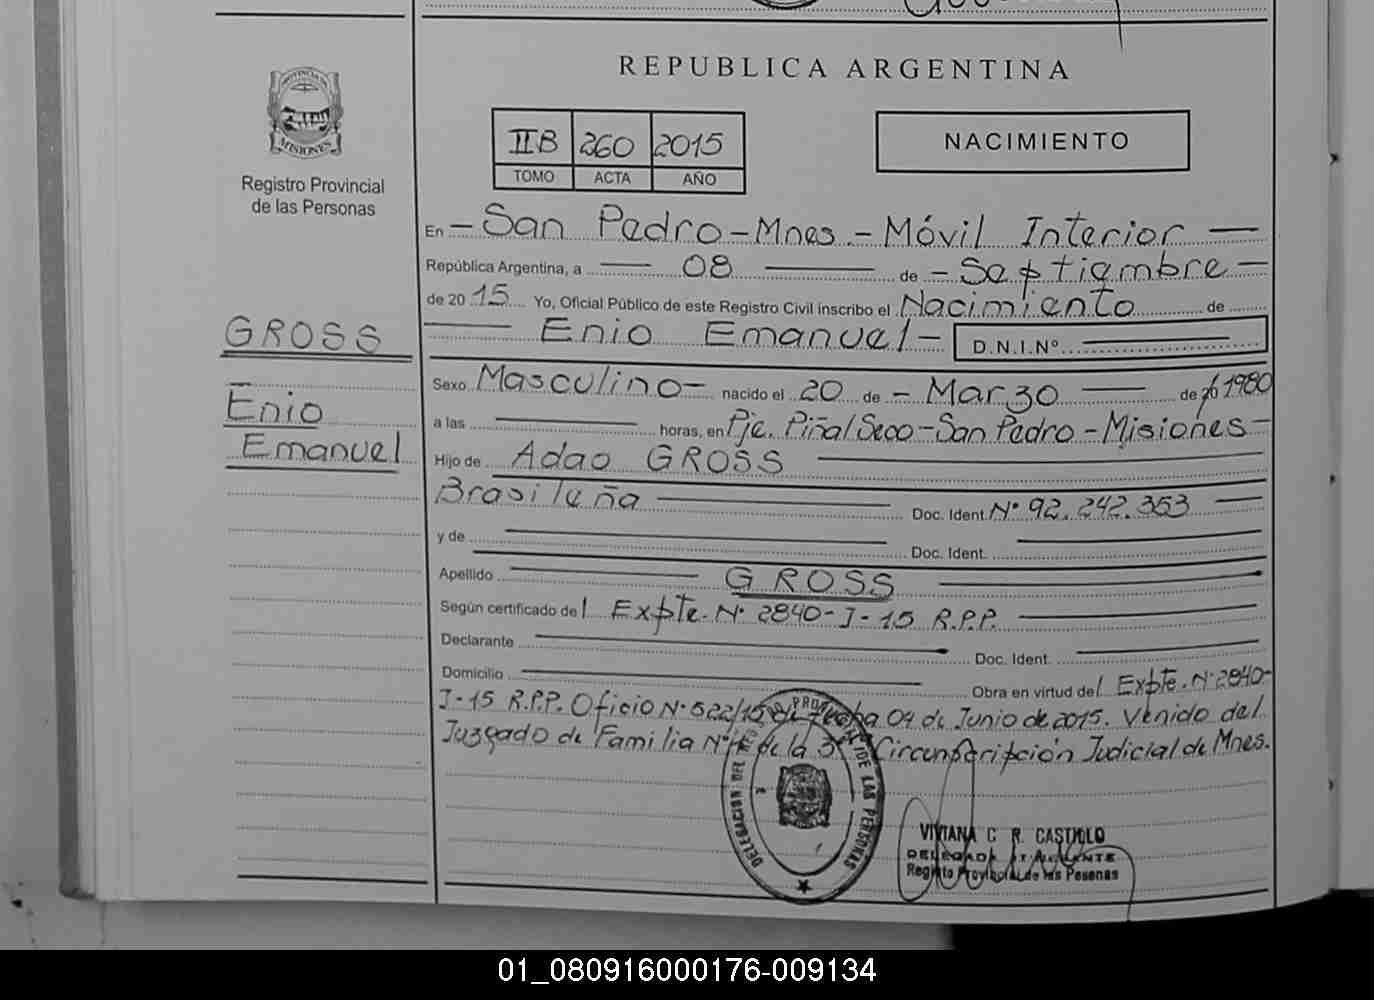 REPUBLICA ARGENTINA
PROVINCIA DE
MISIONES
Registro Provincial
de las Personas
IIB 260 2015
TOMO ACTA AÑO
NACIMIENTO
En - San Pedro - Mnes. - Móvil Interior -
República Argentina, a 08 de - Septiembre -
de 2015 Yo, Oficial Público de este Registro Civil inscribo el Nacimiento de
Enio Emanuel - D.N.I.Nº
GROSS
Enio
Emanuel
Sexo Masculino - nacido el 20 de - Marzo de 1980
a las horas, en Pje. Piñal Seco - San Pedro - Misiones -
Hijo de Adao GROSS
Brasileña Doc. Ident. Nº 92.242.353
y de Doc. Ident.
Apellido GROSS
Según certificado del Expte. Nº 2840-J-15 R.P.P.
Declarante Doc. Ident.
Domicilio Obra en virtud del Expte. Nº 2840-
J-15 R.P.P. Oficio Nº 522/15 de fecha 04 de Junio de 2015. Venido del
Juzgado de Familia Nº de la 3º Circunscripción Judicial de Mnes.
DELEGACION DEL REGISTRO PROVINCIAL DE LAS PERSONAS
VIVIANA C. R. CASTILLO
DELEGADA
Registro Provincial de las Pesonas
01_080916000176-009134